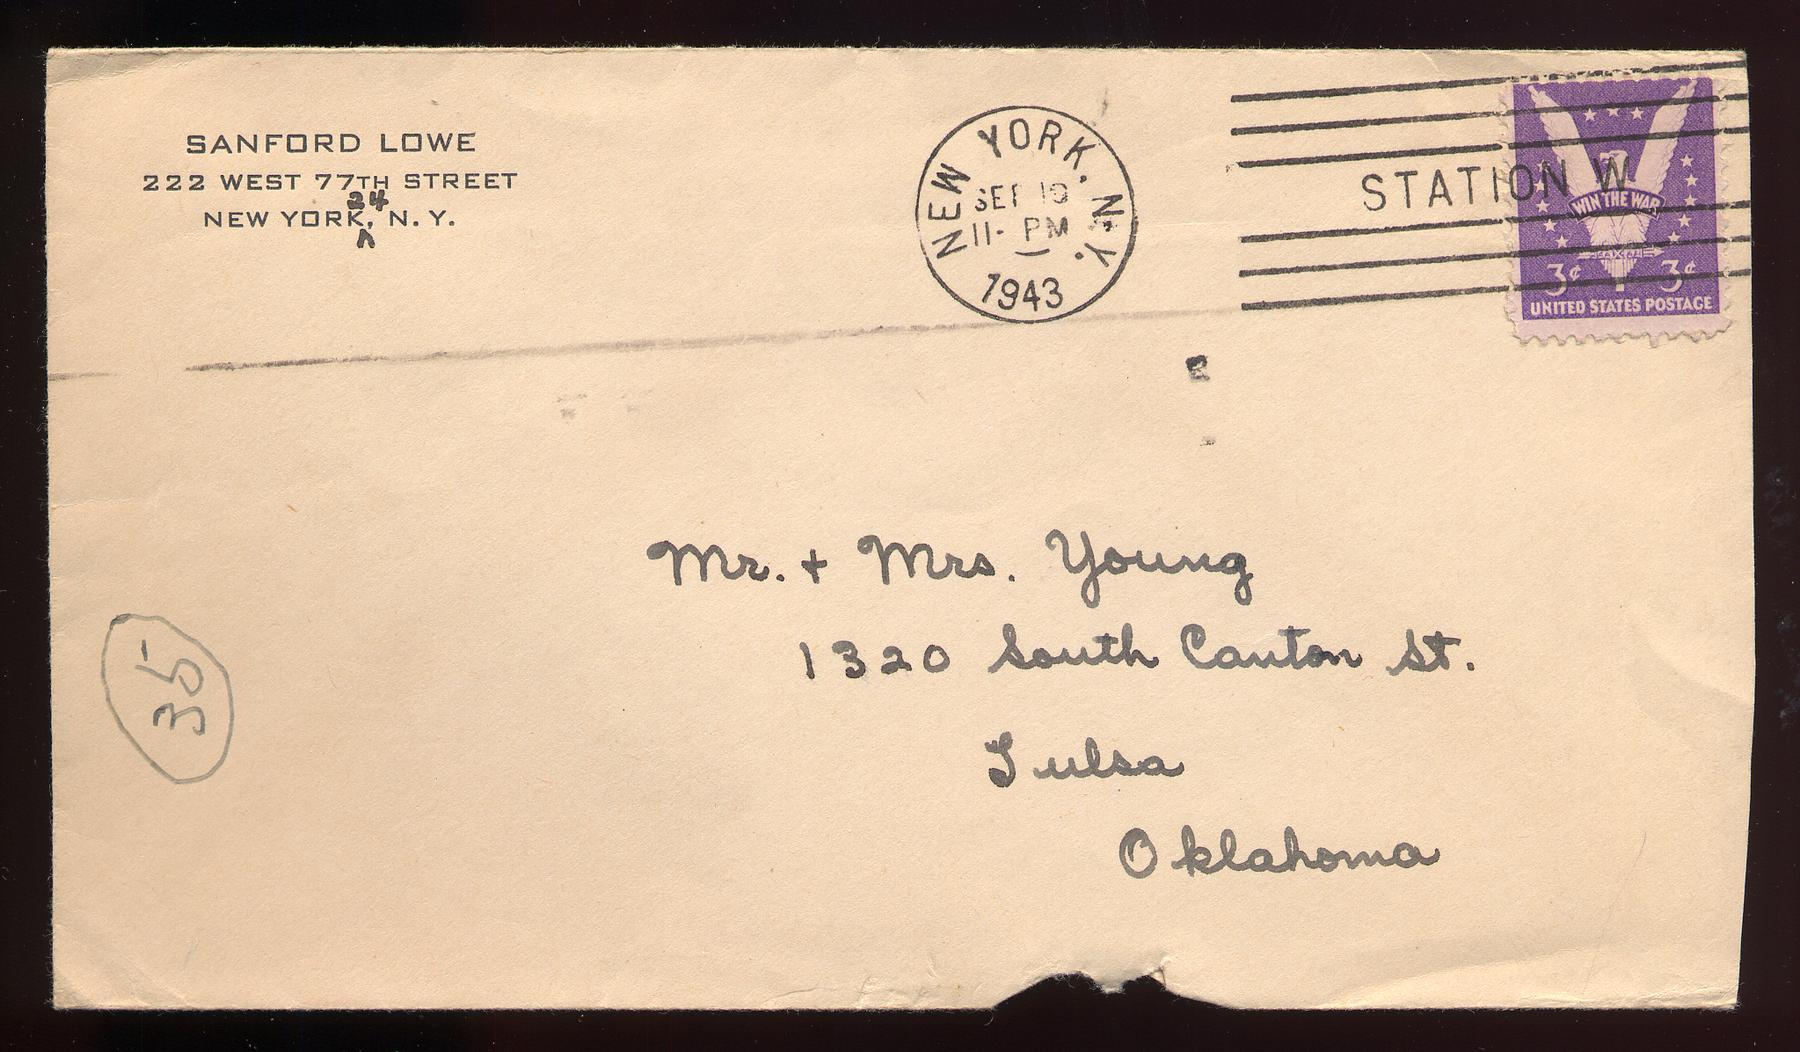 SANFORD LOWE
222 WEST 77TH STREET
24
NEW YORK, N. Y.
NEW YORK, N.Y.
SEP 10
11- PM
1943
STATION W
WIN THE WAR
3¢ 3¢
UNITED STATES POSTAGE
Mr. + Mrs. Young
1320 South Canton St.
Tulsa
Oklahoma
35